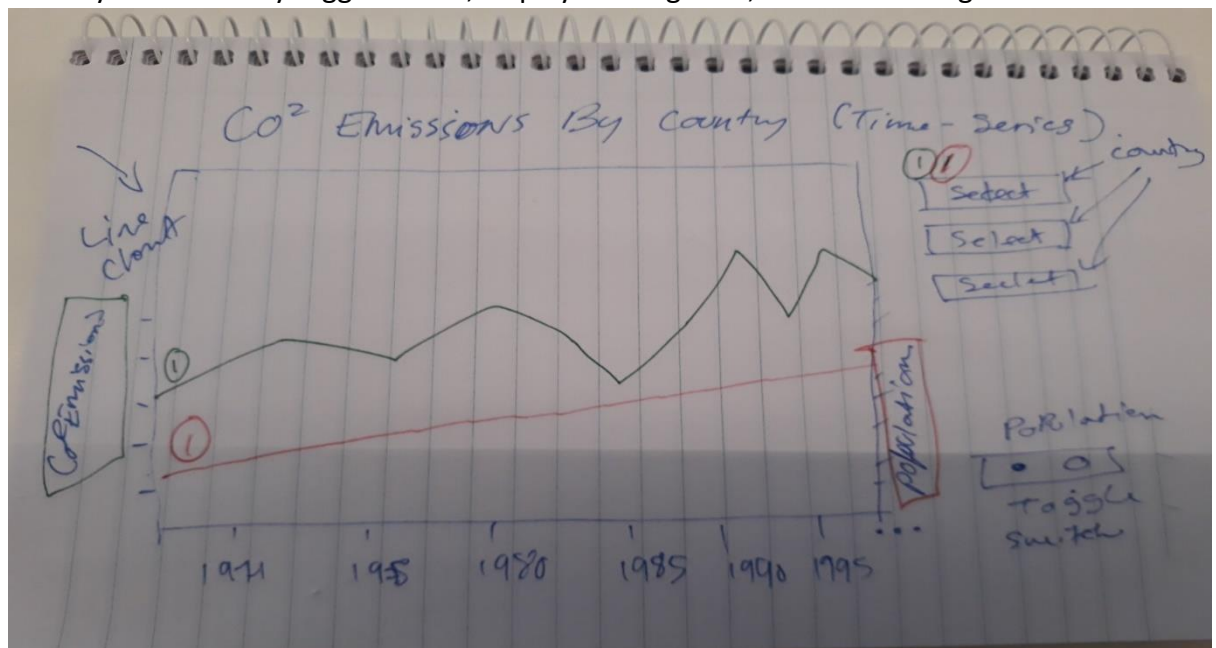 CO² Emisssions By Country (Time-Series)
Line
Chart
country
1 1
Select
Select
Seclet
CO² Emissions
1
1
Population
Population
Toggle
Switch
...
1971 1975 1980 1985 1990 1995